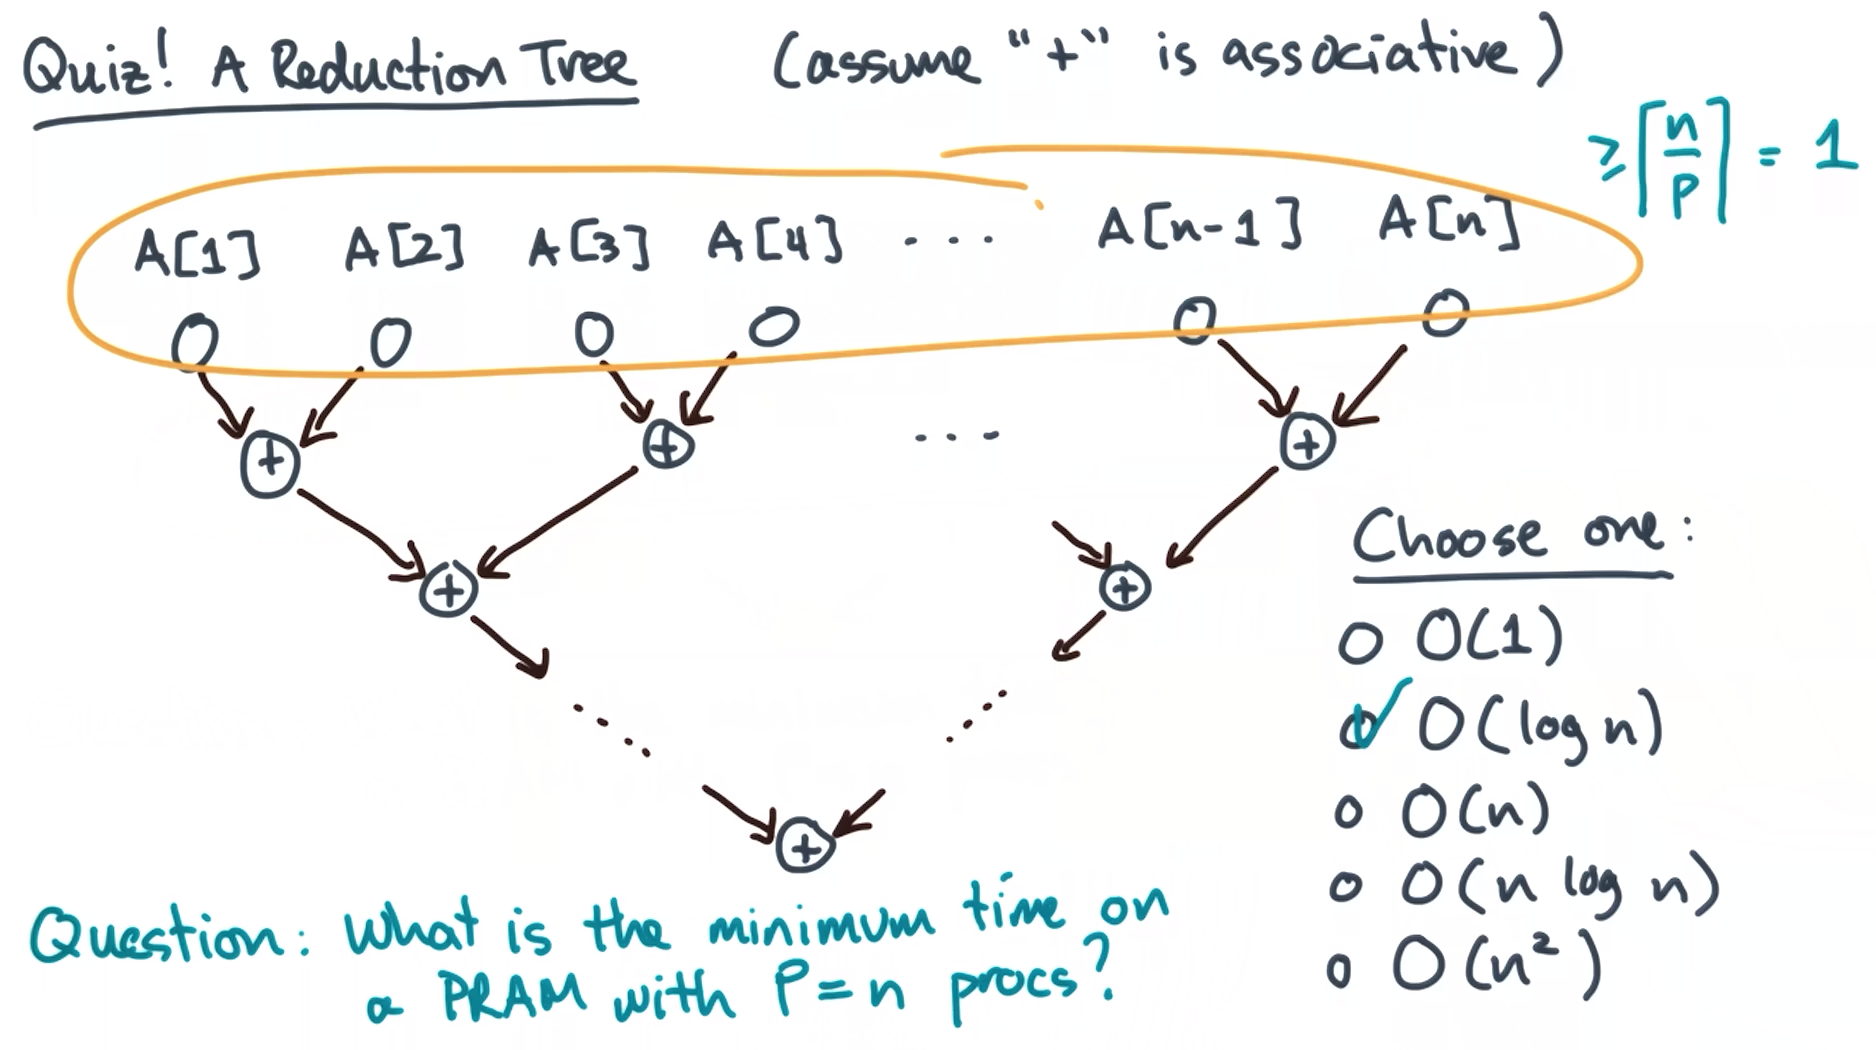 Quiz! A Reduction Tree (assume "+" is associative)
≥ ⌈n/P⌉ = 1
A[1] A[2] A[3] A[4] ... A[n-1] A[n]
O O O O O O
+ + ... +
+ +
+
Choose one:
O(1)
✓ O(log n)
O(n)
O(n log n)
O(n²)
Question: What is the minimum time on
a PRAM with P=n procs?